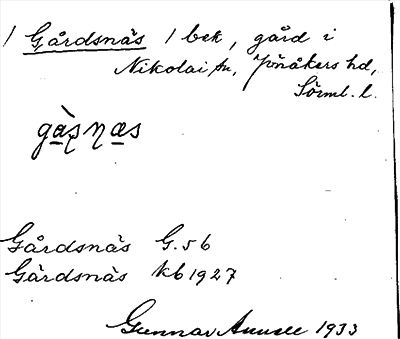 / Gårdsnäs / bek, gård i
Nikolai sn, Jönåkers hd,
Sörml. l.
gàṣƞæs
Gårdsnäs G. 56
Gårdsnäs kb 1927
Gunnar 1933